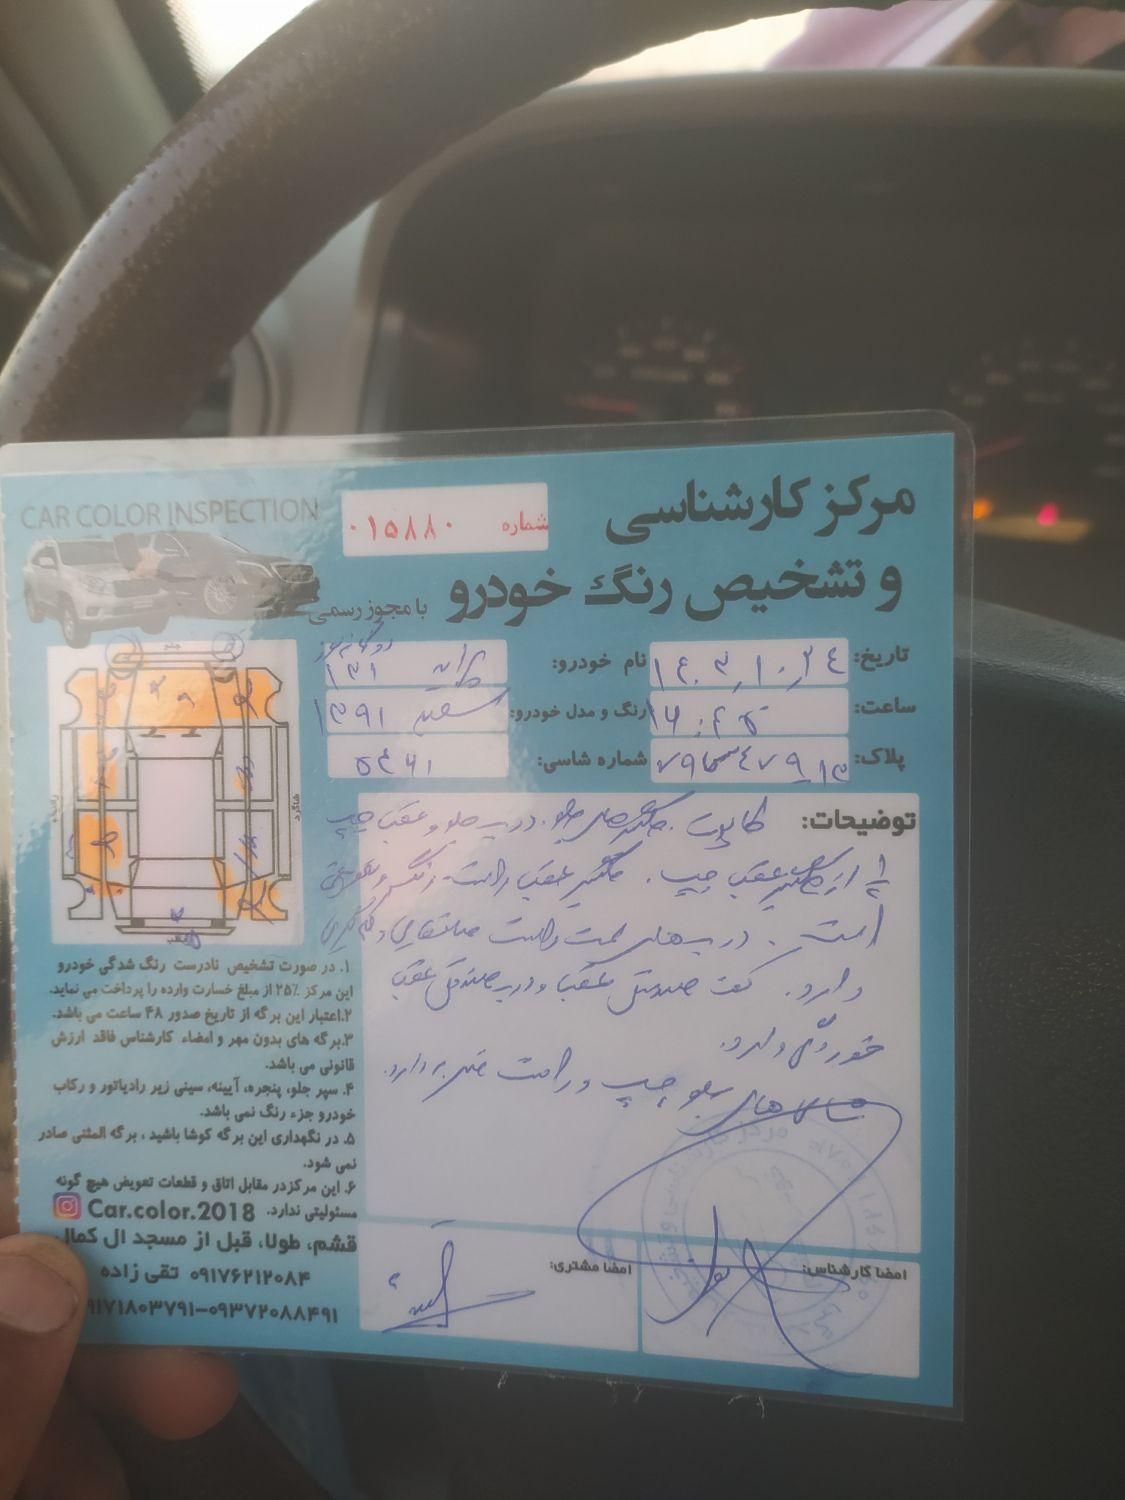 CAR COLOR INSPECTION
شماره ۰۱۵۸۸۰
مرکز کارشناسی
و تشخیص رنگ خودرو با مجوز رسمی
تاریخ: ۱۴۰۳,۱۰,۲۴
نام خودرو: پراید ۱۳۱ دوگانه سوز
ساعت: ۱۶:۴۵
رنگ و مدل خودرو: سفید ۱۳۹۱
پلاک:
شماره شاسی:
جلو
شاگرد
راننده
عقب
توضیحات: کاپوت. گلگیرهای جلو. درب جلو و عقب چپ
۱/۲ از گلگیر عقب چپ. گلگیر عقب راست رنگ و تعویض
است. درب‌های سمت راست صافکاری و
دارد. کف صندوق عقب و درب صندوق عقب
خوردگی دارد.
های جلو چپ و راست ضربه دارد.
۱. در صورت تشخیص نادرست رنگ شدگی خودرو
این مرکز ۲۵٪ از مبلغ خسارت وارده را پرداخت می نماید.
۲.اعتبار این برگه از تاریخ صدور ۴۸ ساعت می باشد.
۳.برگه های بدون مهر و امضاء کارشناس فاقد ارزش
قانونی می باشد.
۴. سپر جلو، پنجره، آیینه، سینی زیر رادیاتور و رکاب
خودرو جزء رنگ نمی باشد.
۵. در نگهداری این برگه کوشا باشید ، برگه المثنی صادر
نمی شود.
۶. این مرکزدر مقابل اتاق و قطعات تعویض هیچ گونه
مسئولیتی ندارد. Car.color.2018
قشم، طولا، قبل از مسجد ال کمال
۰۹۱۷۶۲۱۲۰۸۴ تقی زاده
۹۱۷۱۸۰۳۷۹۱-۰۹۳۷۲۰۸۸۴۹۱
امضا مشتری:
امضا کارشناس: